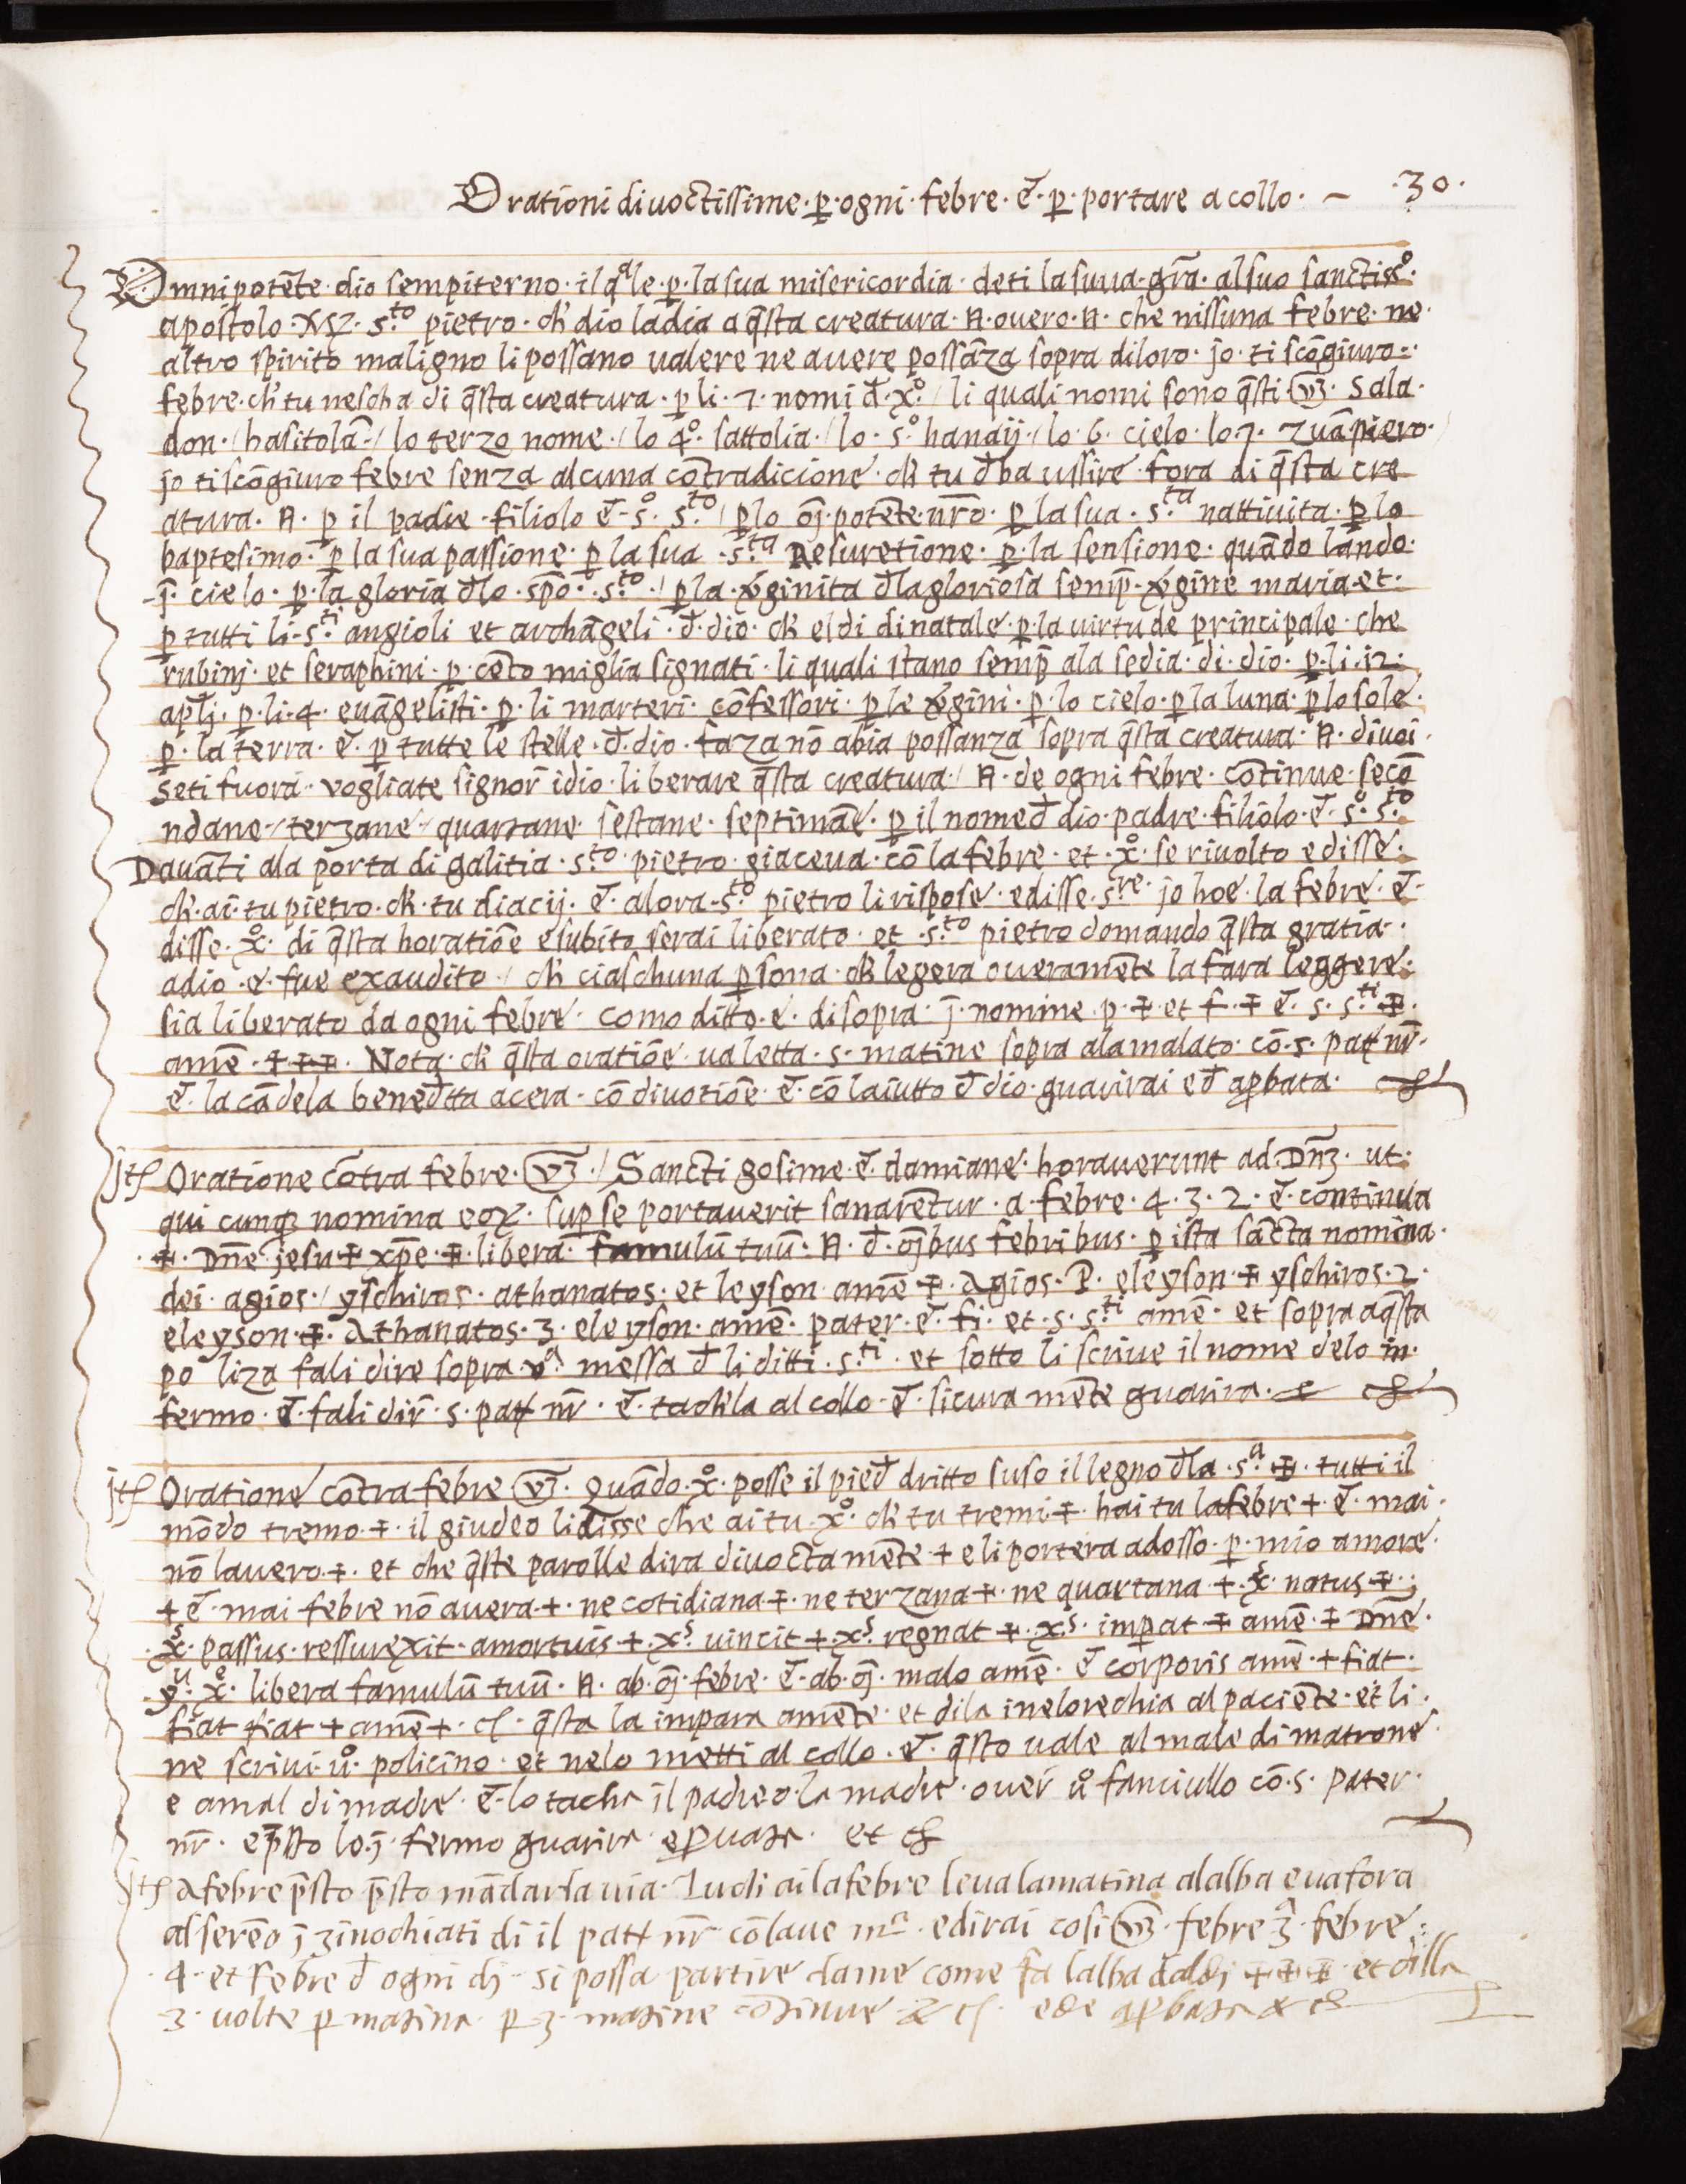 Orationi diuoctissime · p̱ · ogni · febre · ē · p̱ · portare a collo · – · 30 ·
Omnipotēte · dio sempiterno · il qᵃle · p̱ · la sua misericordia · deti la suua · gr̄a · al suo sanctissº ·
apostolo · s.ᵗᵒ pietro · ch' dio la dia a q̄sta creatura · A · ouero · A · che nissuna febre · ne ·
altro spirito maligno li possano ualere ne auere possāza sopra di loro · jo · ti scōgiuro ·
febre · ch' tu nescha di q̄sta creatura · p̱ li · 7 · nomi đ · xº / li quali nomi sono q̄sti · Sala ·
don · / hasitolā · / lo terzo nome · / lo 4º · sattolia · / lo · 5º hanaij · / lo · 6 · cielo · lo · 7 · zuāpiero ·
jo ti scōgiuro febre senza alcuna cōtradicione · ch' tu đba ussire · fora di q̄sta cre
atura · A · p̱ il padre · filiolo ē · sº · s.ᵗᵒ / p̱ lo oj̄ · potēte · nr̄o · p̱ la sua · s.ᵗᵃ nattiuita · p̱ lo
baptesimo · p̱ la sua passione · p̱ la sua · s.ᵗᵃ Resuretione · p̱ · la sensione · quādo lando ·
j̄ · cielo · p̱ · la gloria đlo · sp̄o · s.ᵗᵒ · / p̱ la · xḡinita đla gloriosa semp̄ · xḡine maria · et ·
p̱ tutti li · s.ᵗⁱ angioli et archāgeli · đ · dio · ch' el di di natale · p̱ · la uirtu de principale · che
rubinj · et seraphini · p̱ · cēto miglia signati · li quali stano semp̄ ala sedia · di · dio · p̱ · li · 12 ·
ap̄lj · p̱ · li · 4 · euāgelisti · p̱ · li marteri · cōfessori · p̱ le xḡini · p̱ · lo cielo · p̱ la luna · p̱ lo sole ·
p̱ · la terra · ē · p̱ tutte le stelle · đ · dio · faza nō abia possanza sopra q̄sta creatura · A · diuoi ·
seti fuora · vogliate signor̄ idio · liberare q̄sta creatura · / A · de ogni febre · cōtinue · secō
ndane · / terzane · / quartane · sestane · septimāe · p̱ il nome đ dio · padre · filiolo · ē · sº · s.ᵗᵒ
Dauāti ala porta di galitia · s.ᵗᵒ · pietro · giaceua · cō la febre · et · xº · se riuolto e disse ·
ch' · ai · tu pietro · ch' · tu diacij · ē · alora · s.ᵗᵒ pietro li rispose · edisse · s.ʳᵉ · jo hoe · la febre · ē ·
disse · xº · di q̄sta horatiōe e subito serai liberato · et · s.ᵗᵒ pietro domando q̄sta gratia ·
adio · e · fue exaudito · / ch' ciaschuna p̱sona · ch' legera oueramēte la fara leggere ·
sia liberato da ogni febre · como ditto · e · di sopra · j̄ · nomine · p · ✠ · et f · ✠ ē · s · s.ᵗⁱ ✠ ·
amē · ✠ ✠ ✠ · Nota · ch' q̄sta oratiōe · ua letta · 5 · matine sopra ala malato · cō · 5 · pat nr̄ ·
ē · la cādela benedtta acera · cō diuotiōe · ē · cō laiutto đ dio · guarirai eđ ap̱bata ·
jtȩ Oratione cōtra febre · / Sancti gosime · ē · damiane · horauerunt ad · Dn̄ȝ · ut ·
qui cunqȝ nomina eoꝝ · sup̱ se portauerit sanarētur · a · febre · 4 · 3 · 2 · ē · continua
✠ · Dn̄e · jesu ✠ xp̄e · ✠ · libera · famulū tuū · A · đ · oj̄bus febribus · p̱ ista sācta nomina ·
dei · agios · / yschiros · athanatos · et leyson · amē ✠ · Agios · P · eleyson · ✠ yschiros · 2 ·
eleyson · ✠ · Athanatos · 3 · eleyson · amē · pater · ē · fi · et · s · s.ᵗⁱ amē · et sopra a q̄sta
po liza fali dire sopra · vᵃ messa đ li ditti · s.ᵗⁱ · et sotto li scriue il nome delo in ·
fermo · ē · fali dir̄ · 5 · pat nr̄ · ē · tach'la al collo · ē · sicura mēte guarira ·
jtȩ Oratione cōtra febre · Quādo · xº · posse il pieđ dritto suso il legno đla · s.ᵃ ✠ · tutti il
mōdo tremo · ✠ · il giudeo li disse che ai tu · xº · ch' tu tremi · ✠ · hai tu la febre + · ē · mai ·
nō lauero · ✠ · et che q̄ste parolle dira diuoctamēte + e li portera adosso · p̱ · mio amore ·
+ ē · mai febre nō auera · + · ne cotidiana · ✠ · ne terzana + · ne quartana · + · xˢ · natus · ✠ ·
xˢ · passus · ressurexit · amortuis + · xˢ · uincit + · xˢ · regnat ✠ · xˢ · imp̱at ✠ amē · ✠ Dn̄e ·
yᵘ · xᵉ · libera famulū tuū · A · ab · oj̄ · febre · ē · ab · oj̄ · malo amē · ē corporis amē · + fiat ·
fiat fiat + amē + · q̄sta la impara amēte · et dila inelorechia al paciēte · et li ·
ne scriui · uº · policino · et nelo metti al collo · ē · q̄sto uale al male di matrone ·
e amal di madre · ē · lo tacha il padre o · la madre · ouer̄ uº fanciullo cō · 5 · pater ·
nr̄ · e p̄sto lo · j̄ · fermo guarira e p̱uata · et
jtȩ A febre p̄sto p̄sto mādarla uia · Tu ch' ai la febre leua la matina alalba e ua fora
al serēo j̄ zinochiati di il pat nr̄ cō laue mᵃ · e dirai cosi · febre 3ᵃ · febre ·
4 · et febre đ ogni dj · si possa partire dame come fa lalba dal dj ✠ ✠ ✠ · et dilla
3 · uolte p̱ matina · p̱ 3 · matine cōtinue · e de ap̱bata